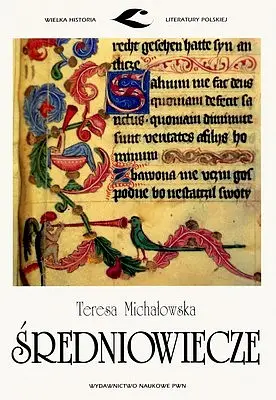 WIELKA HISTORIA
LITERATURY POLSKIEJ
recht gesehen hatte syn an
thcze
Saluum me fac deus
quoniam defecit sa
ctus · quoniam diminute
sunt veritates afilys ho
minum
Zbawona me vczin gos
podne bo nestatczil swoty
Teresa Michałowska
ŚREDNIOWIECZE
WYDAWNICTWO NAUKOWE PWN